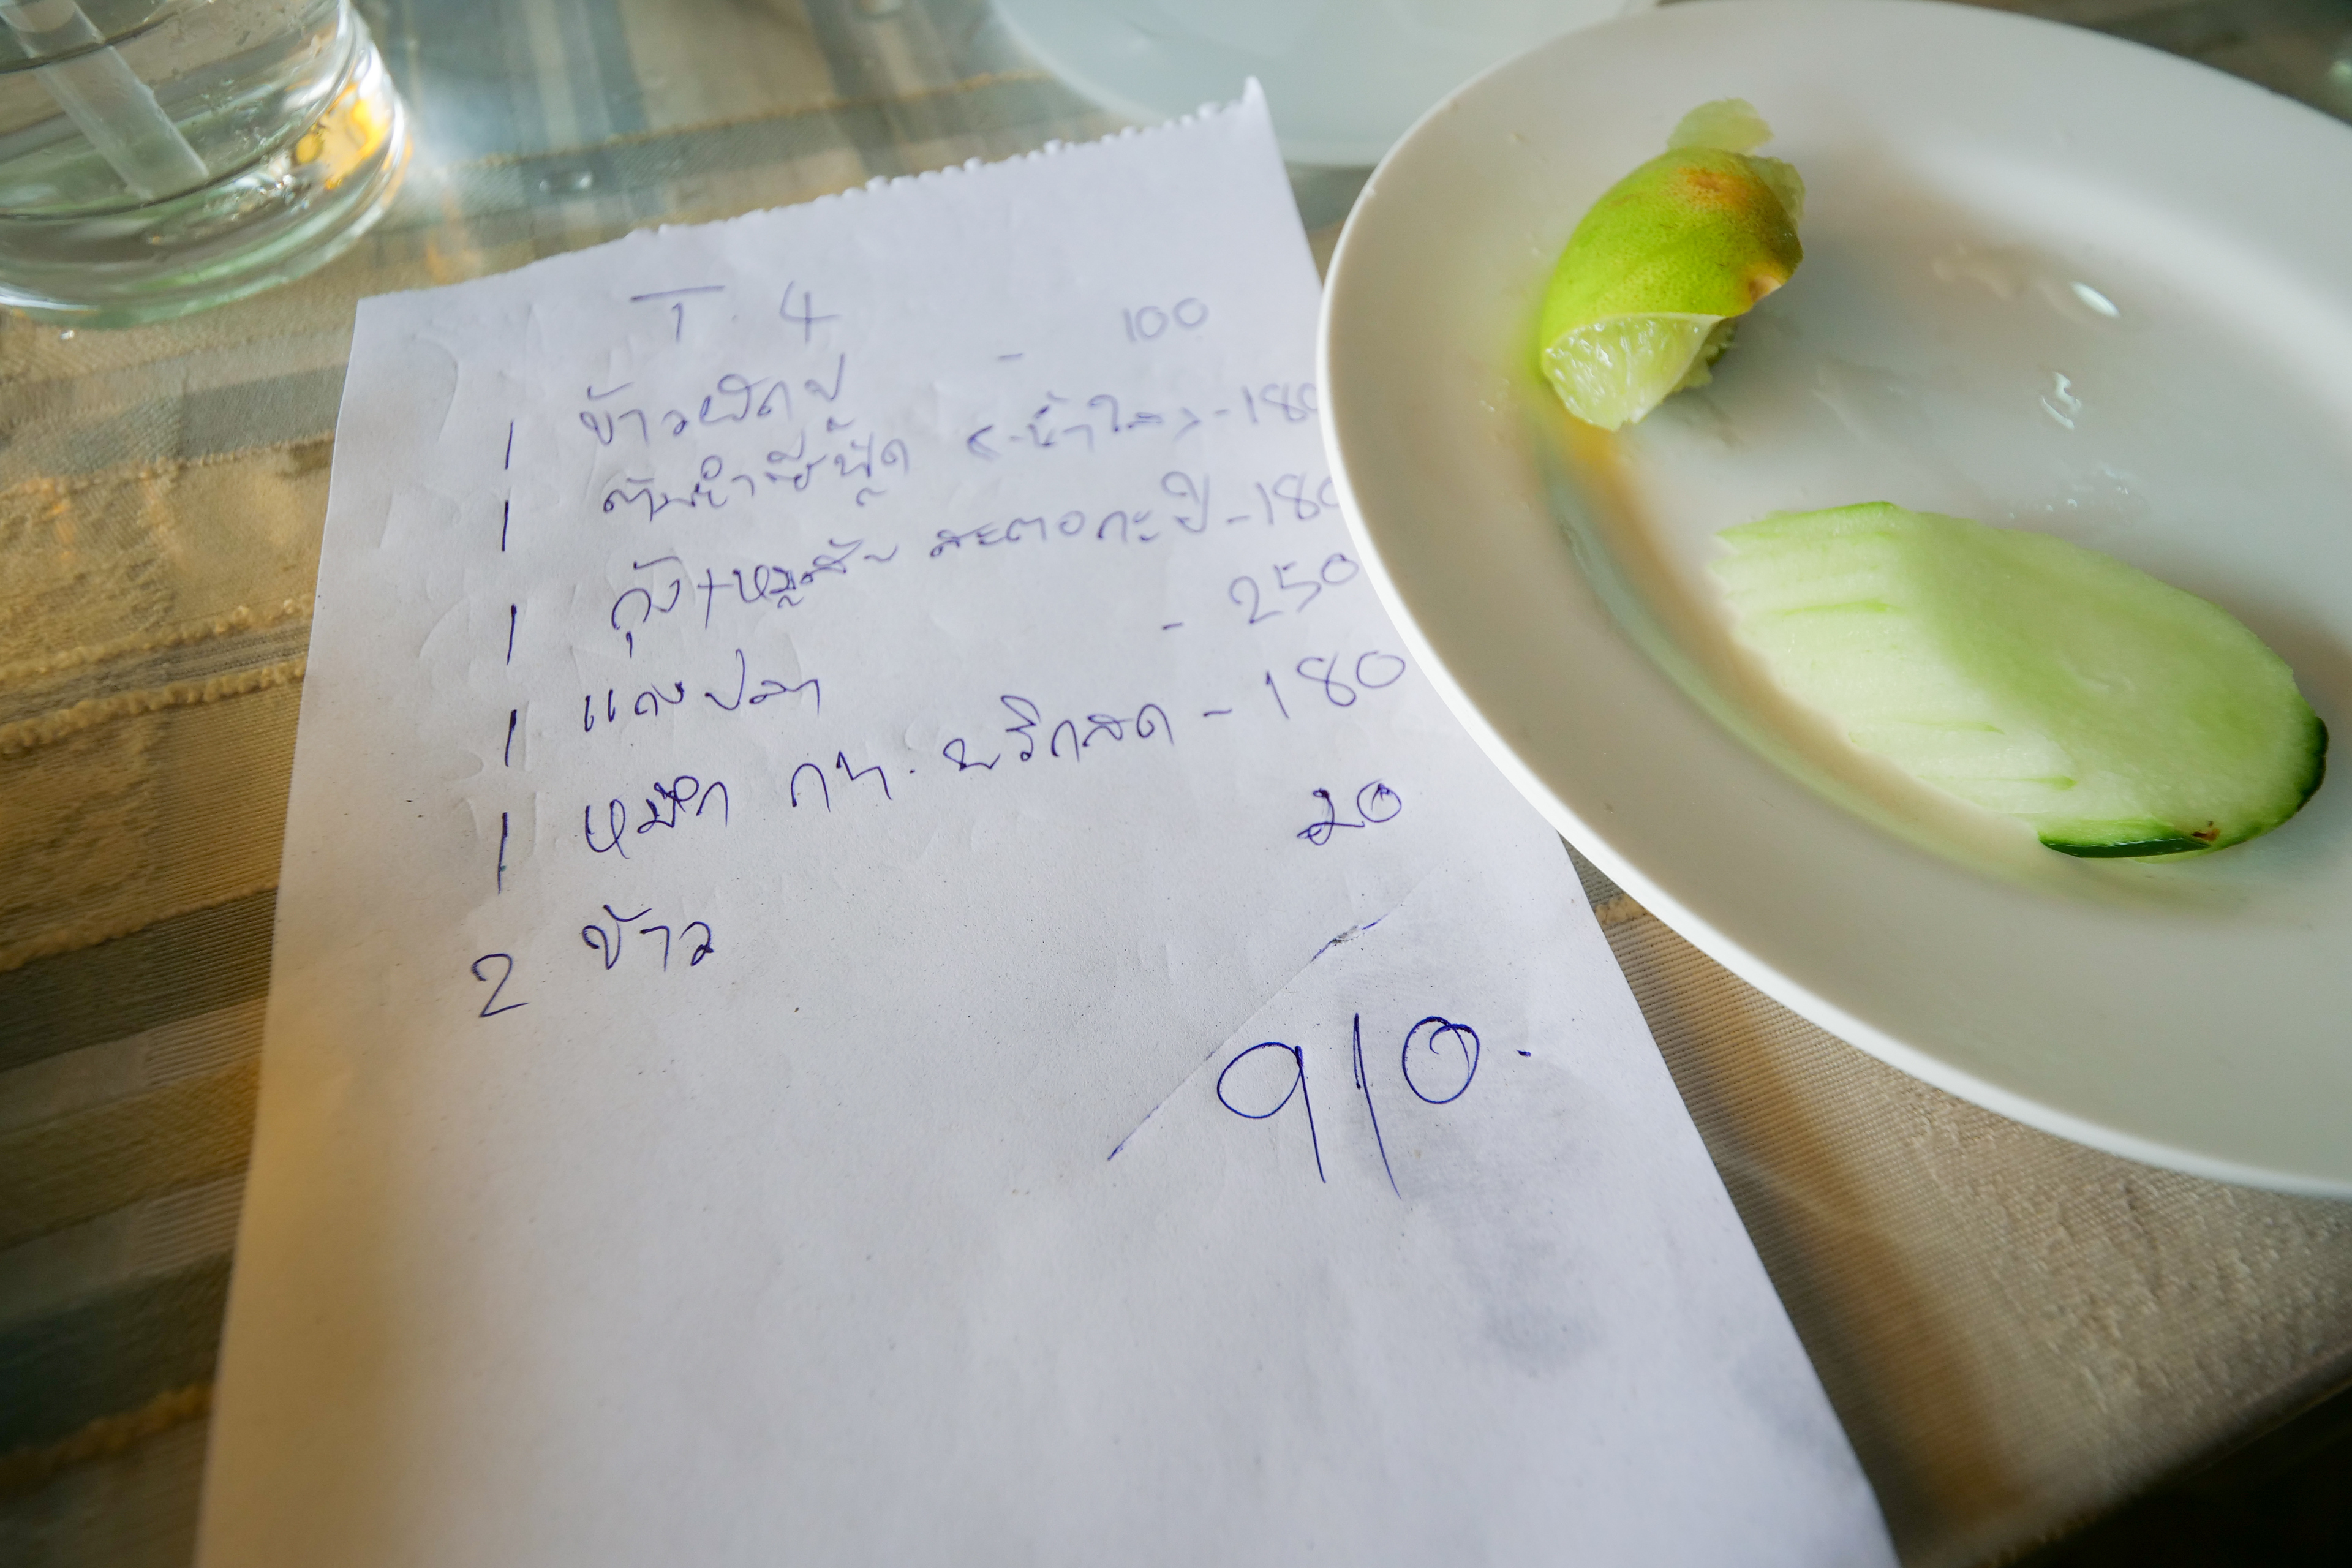 T. 4
1 ข้าวผัดปู - 100
1 ต้มยำซีฟู้ด <น้ำใส> - 180
1 กุ้ง+หมูสับ สะตอกะปิ - 180
1 แกงปลา - 250
1 หมึก กท. พริกสด - 180
2 ข้าว 20
910.